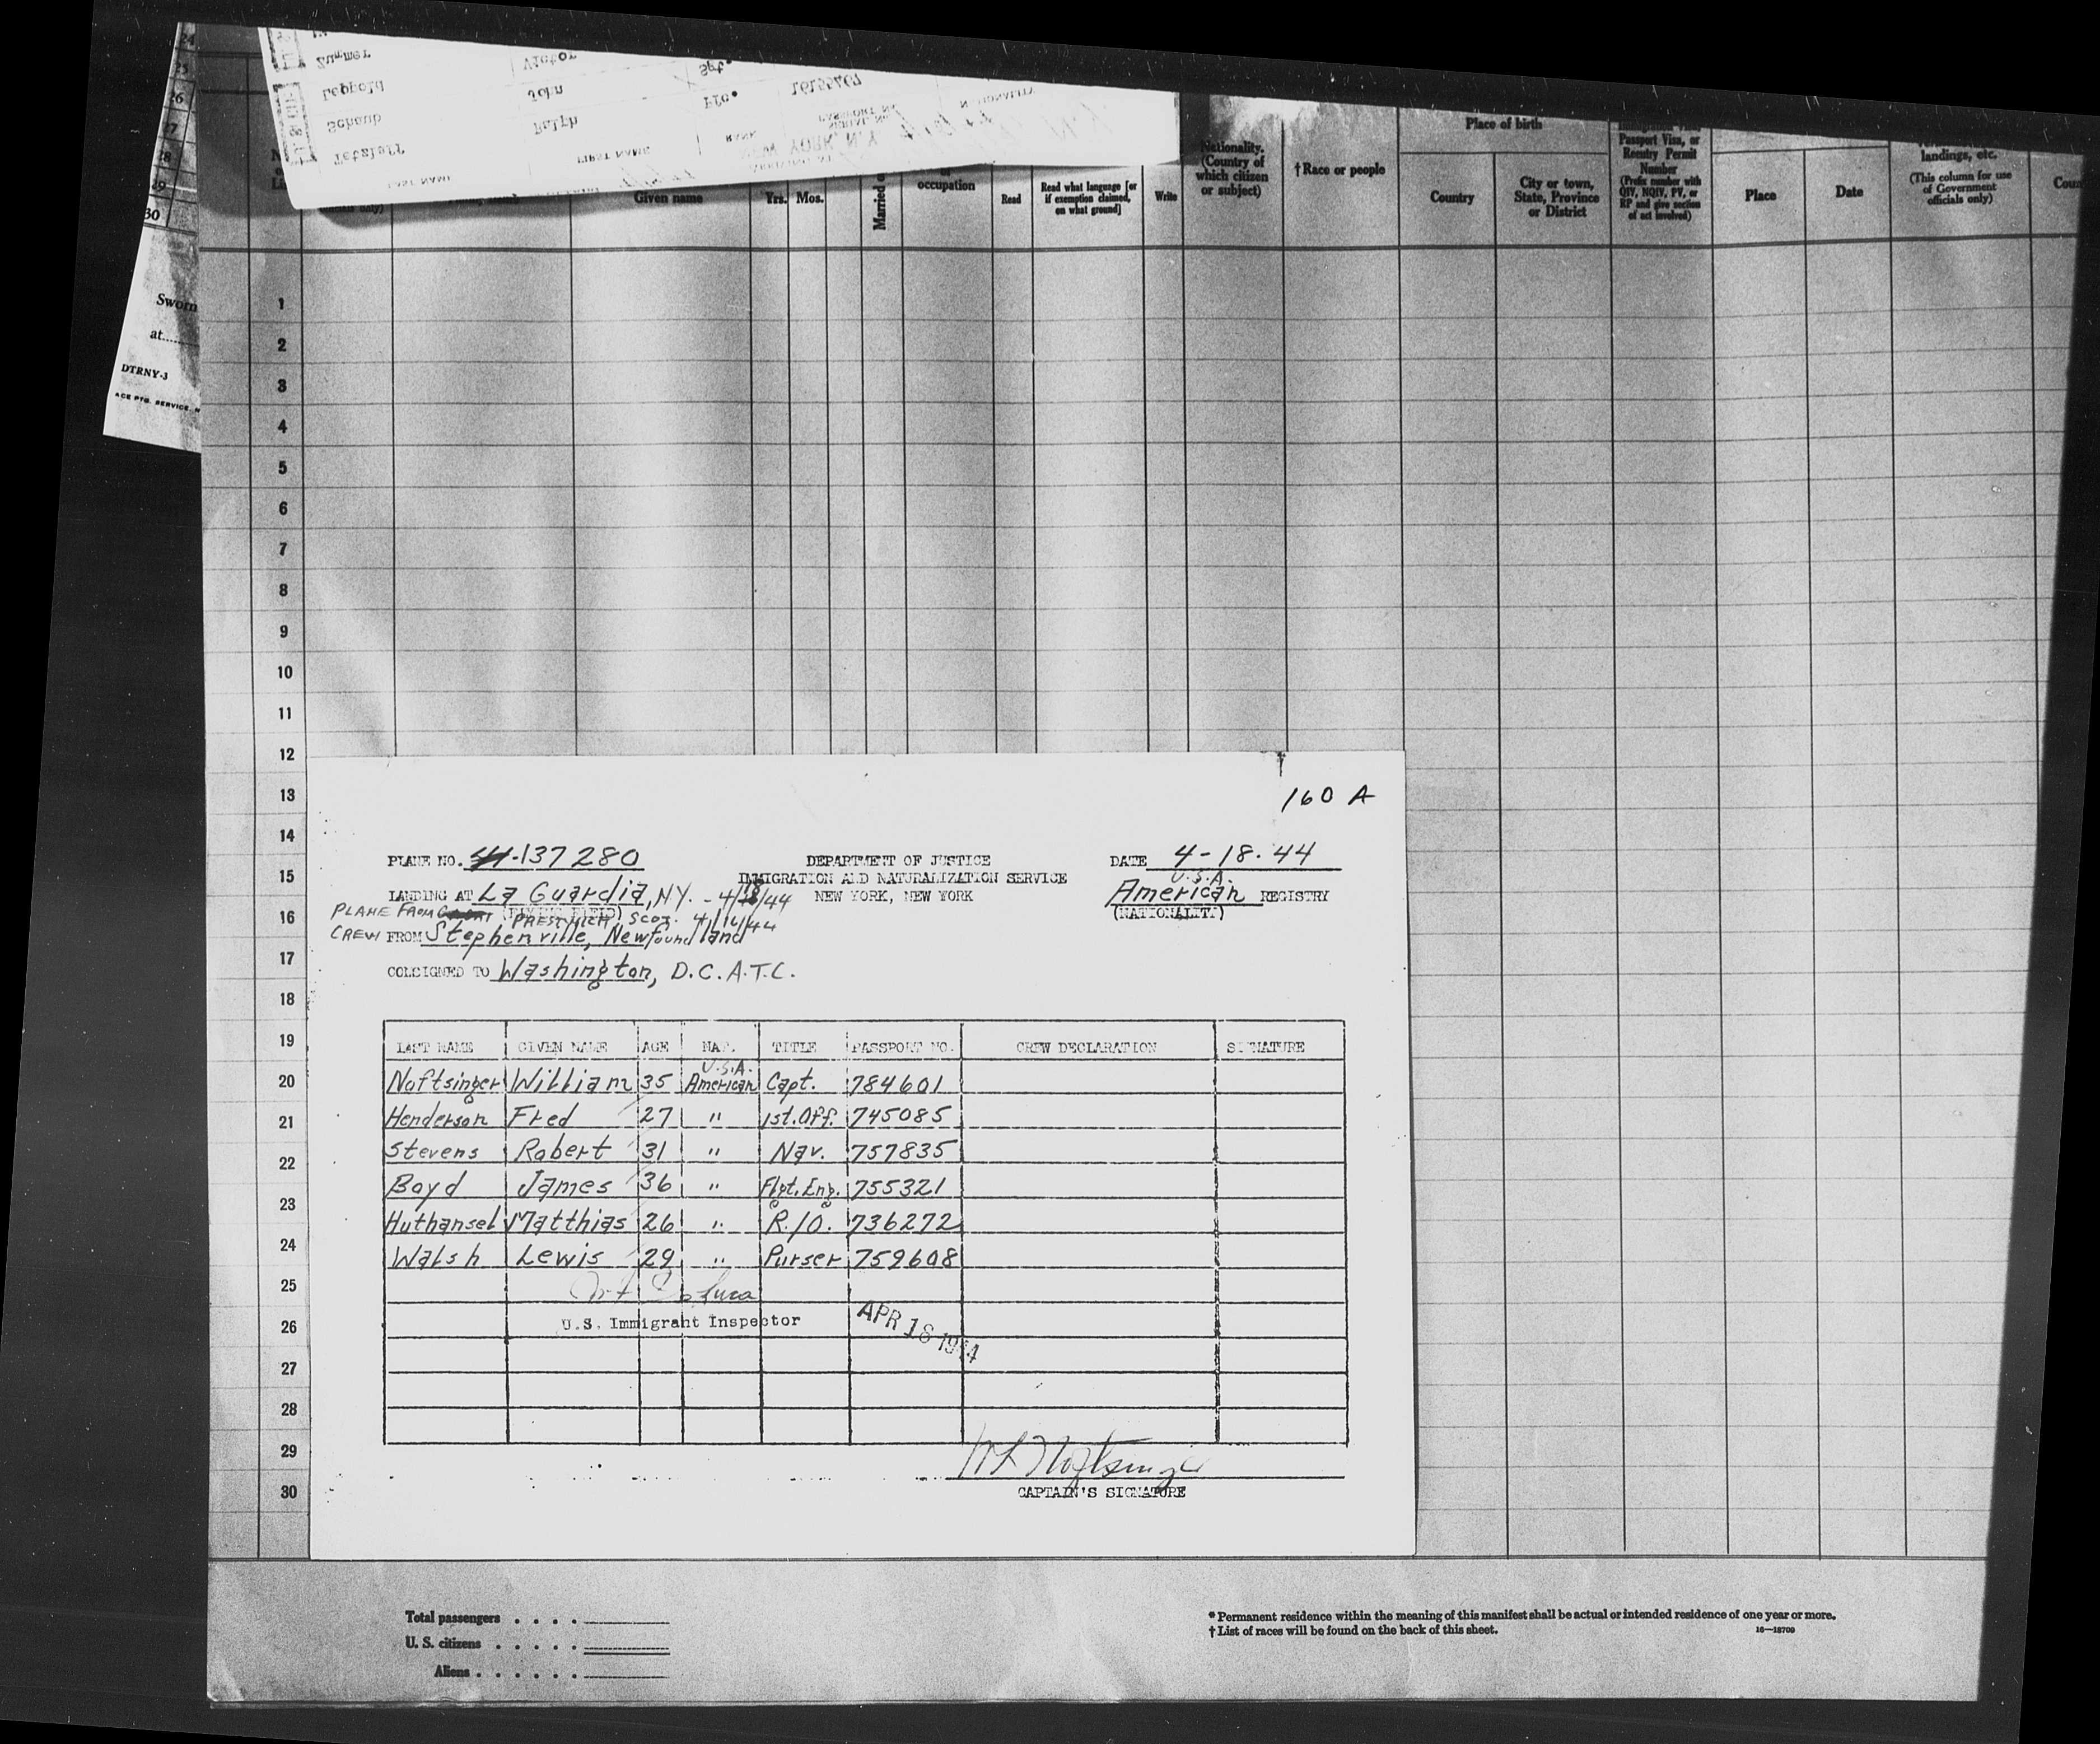 24
25
26
27
28
29
30
Sworn
at
DTRNY-3
ACE PTG. SERVICE
Zummer Victor Sgt.
Leppold John Pfc. 16155267
Schaub Ralph
Tetzlaff
LAST NAME FIRST NAME RANK SERIAL NO. PASSPORT NO.
NEW YORK, N.Y.
only)
Given name
Yrs. Mos.
Married o
occupation
Read
Read what language [or
if exemption claimed,
on what ground]
Write
Nationality.
(Country of
which citizen
or subject)
†Race or people
Place of birth
Country
City or town,
State, Province
or District
Passport Visa, or
Reentry Permit
Number
(Prefix number with
QIV, NQIV, PV, or
RP and give section
of act involved)
Place
Date
landings, etc.
(This column for use
of Government
officials only)
Coun
1
2
3
4
5
6
7
8
9
10
11
12
13
14
15
16
17
18
19
20
21
22
23
24
25
26
27
28
29
30
160 A
PLANE NO. 44-137280
DEPARTMENT OF JUSTICE
IMMIGRATION AND NATURALIZATION SERVICE
NEW YORK, NEW YORK
DATE 4-18-44
U.S.A.
American REGISTRY
(NATIONALITY)
LANDING AT La Guardia, NY. - 4/18/44
PLANE FROM PRESTWICK, SCOT. 4/16/44
CREW FROM Stephenville, Newfoundland
CONSIGNED TO Washington, D.C. A.T.C.
LAST NAME GIVEN NAME AGE NAT. TITLE PASSPORT NO. CREW DECLARATION SIGNATURE
U.S.A.
Noftsinger William 35 American Capt. 784601
Henderson Fred 27 " 1st. Off. 745085
Stevens Robert 31 " Nav. 757835
Boyd James 36 " Flgt. Eng. 755321
Huthansel Matthias 26 " R./O. 736272
Walsh Lewis 29 " Purser 759608
U.S. Immigrant Inspector
APR 18 1944
W L Noftsinger
CAPTAIN'S SIGNATURE
Total passengers . . . .
U. S. citizens . . . . .
Aliens . . . . . .
* Permanent residence within the meaning of this manifest shall be actual or intended residence of one year or more.
† List of races will be found on the back of this sheet.
16—18700